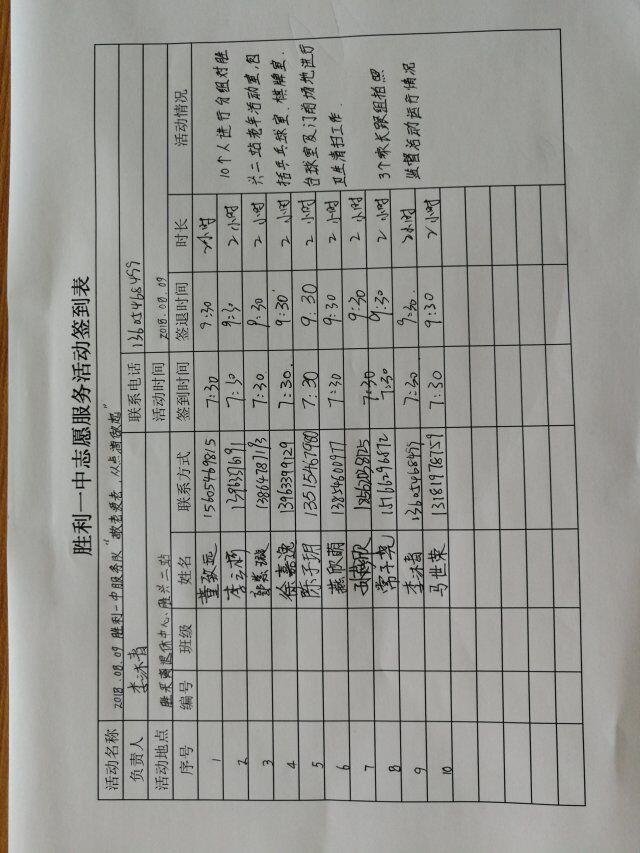 胜利一中志愿服务活动签到表
活动名称 2018.08.09 胜利一中服务队“敬老爱老，从点滴做起”
负责人 李沐青 联系电话 13605468499
活动地点 胜采离退休中心、胜兴二站 活动时间 2018.08.09
序号 编号 班级 姓名 联系方式 签到时间 签退时间 时长 活动情况
1 董致远 15605469815 7:30 9:30 2小时
2 7:30 9:30 2小时
3 13864787193 7:30 9:30 2小时
4 徐嘉逸 13963399129 7:30 9:30 2小时
5 陈子玥 13515467980 7:30 9:30 2小时
6 燕欣萌 13854600977 7:30 9:30 2小时
7 7:30 9:30 2小时
8 常子尧 15166296872 7:30 9:30 2小时
9 李沐青 13605468499 7:30 9:30 2小时
10 马世荣 13181978759 7:30 9:30 2小时
10个人进行分组对胜
兴二站老年活动室，包
括乒乓球室、棋牌室、
台球室及门前场地进行
卫生清扫工作.
3个家长跟组拍照
监督活动运行情况